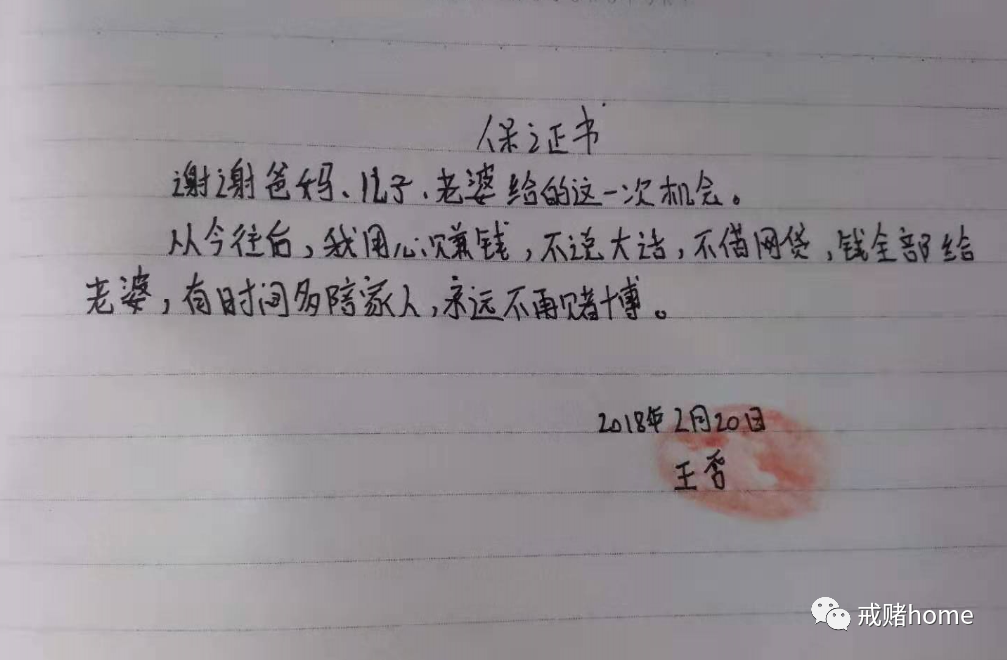 保证书
谢谢爸妈、儿子、老婆给的这一次机会。
从今往后，我用心赚钱，不说大话，不借网贷，钱全部给
老婆，有时间多陪家人，永远不再赌博。
2018年2月20日
王
戒赌home